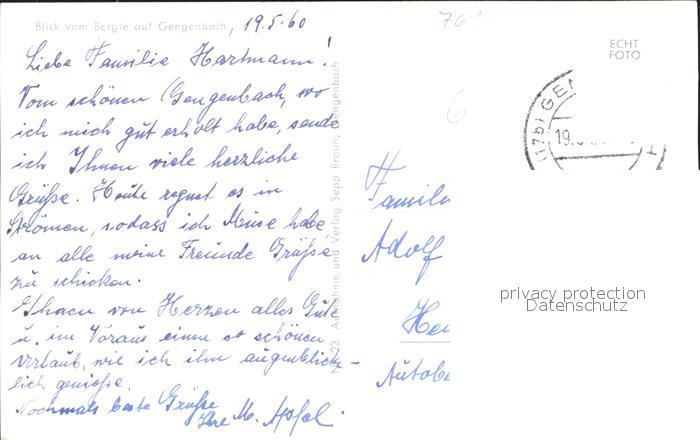 Blick vom Bergle auf Gengenbach, 19.5.60
Liebe Familie Hartmann!
Vom schönen Gengenbach, wo
ich mich gut erholt habe, sende
ich Ihnen viele herzliche
Grüße. Heute regnet es in
Strömen, sodass ich Muse habe,
an alle meine Freunde Grüße
zu schicken.
Ihnen von Herzen alles Gute
u. im Voraus einen so schönen
Urlaub, wie ich ihn augenblick-
lich genieße.
Nochmals beste Grüße
Ihre M.
Aufnahme und Verlag Sepp Braun, Gengenbach
ECHT
FOTO
(17b) GEN
19.
Famili
Adolf
privacy protection
Datenschutz
Autobe